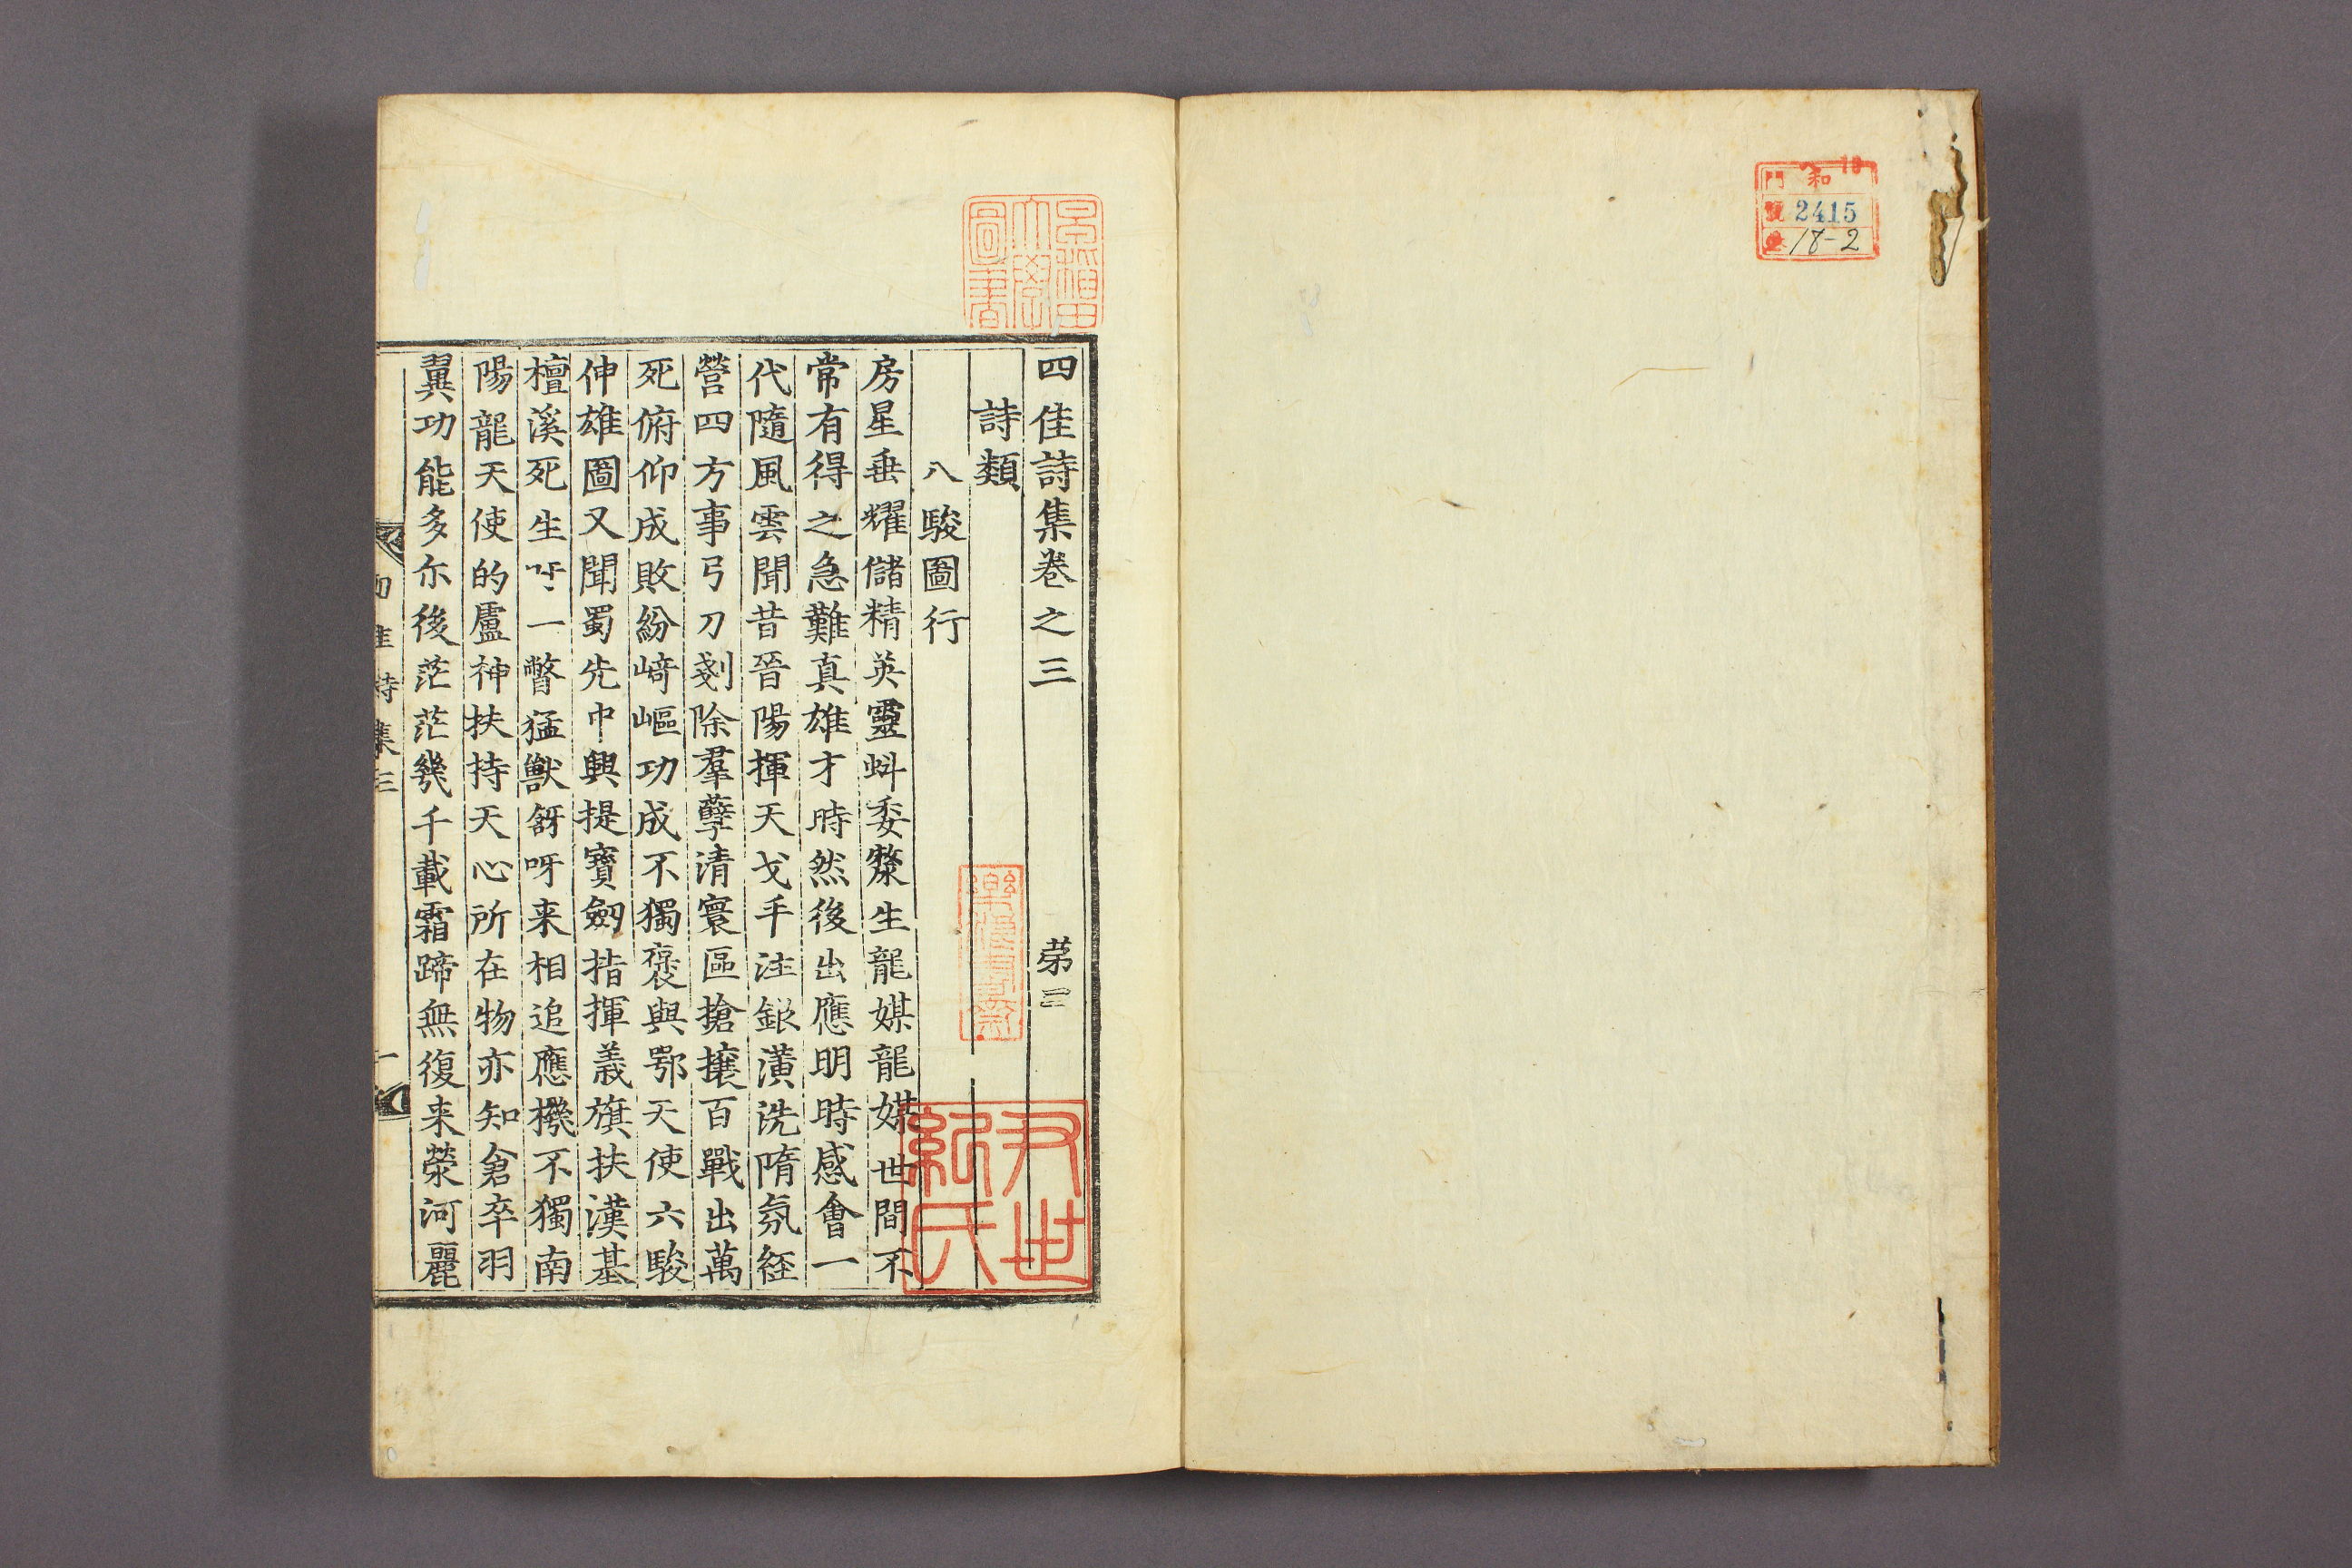 和
門
號 2415
卷 18-2
早稲田大學圖書
四佳詩集卷之三 苐三
詩類
八駿圖行
房星垂耀儲精英靈蚪委漦生龍媒龍媒世間不
常有得之急難真雄才時然後出應明時感會一
代隨風雲聞昔晉陽揮天戈手注銀潢洗隋氛経
營四方事弓刀剗除羣孽清寰區搶攘百戰出萬
死俯仰成敗紛崎嶇功成不獨褒與鄂天使六駿
伸雄圖又聞蜀先中興提寶劒指揮義旗扶漢基
檀溪死生一瞥猛獸谺呀来相追應機不獨南
陽龍天使的盧神扶持天心所在物亦知倉卒羽
翼功能多尓後茫茫幾千載霜蹄無復来滎河麗
四佳詩集三 一
尹世
紀氏